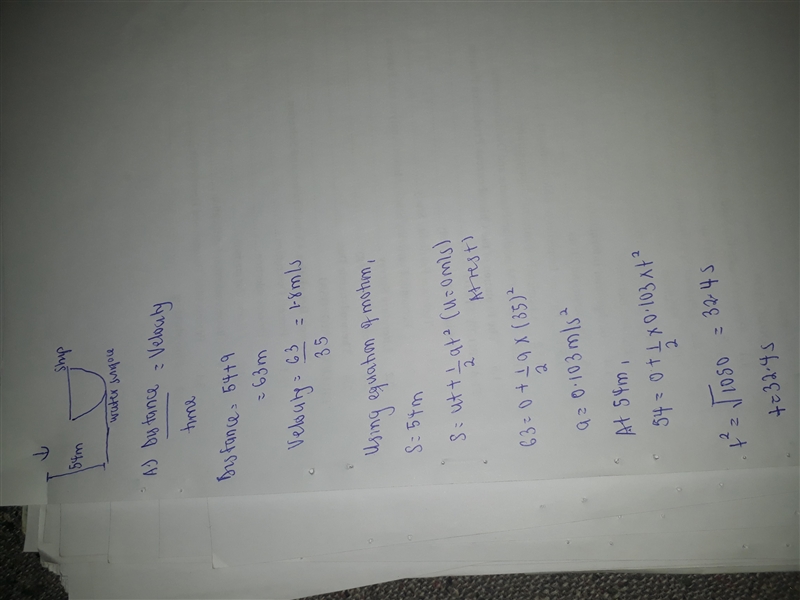 54m
ship
water surface
A) Distance = Velocity
time
Distance = 54+9
= 63m
Velocity = 63 = 1.8m/s
35
Using equation of motion,
S = 54m
S = ut + 1/2 at² (u = 0m/s)
At rest)
63 = 0 + 1/2 a x (35)²
a = 0.103m/s²
At 54m,
54 = 0 + 1/2 x 0.103 x t²
t² = √1050 = 32.4s
t = 32.4s